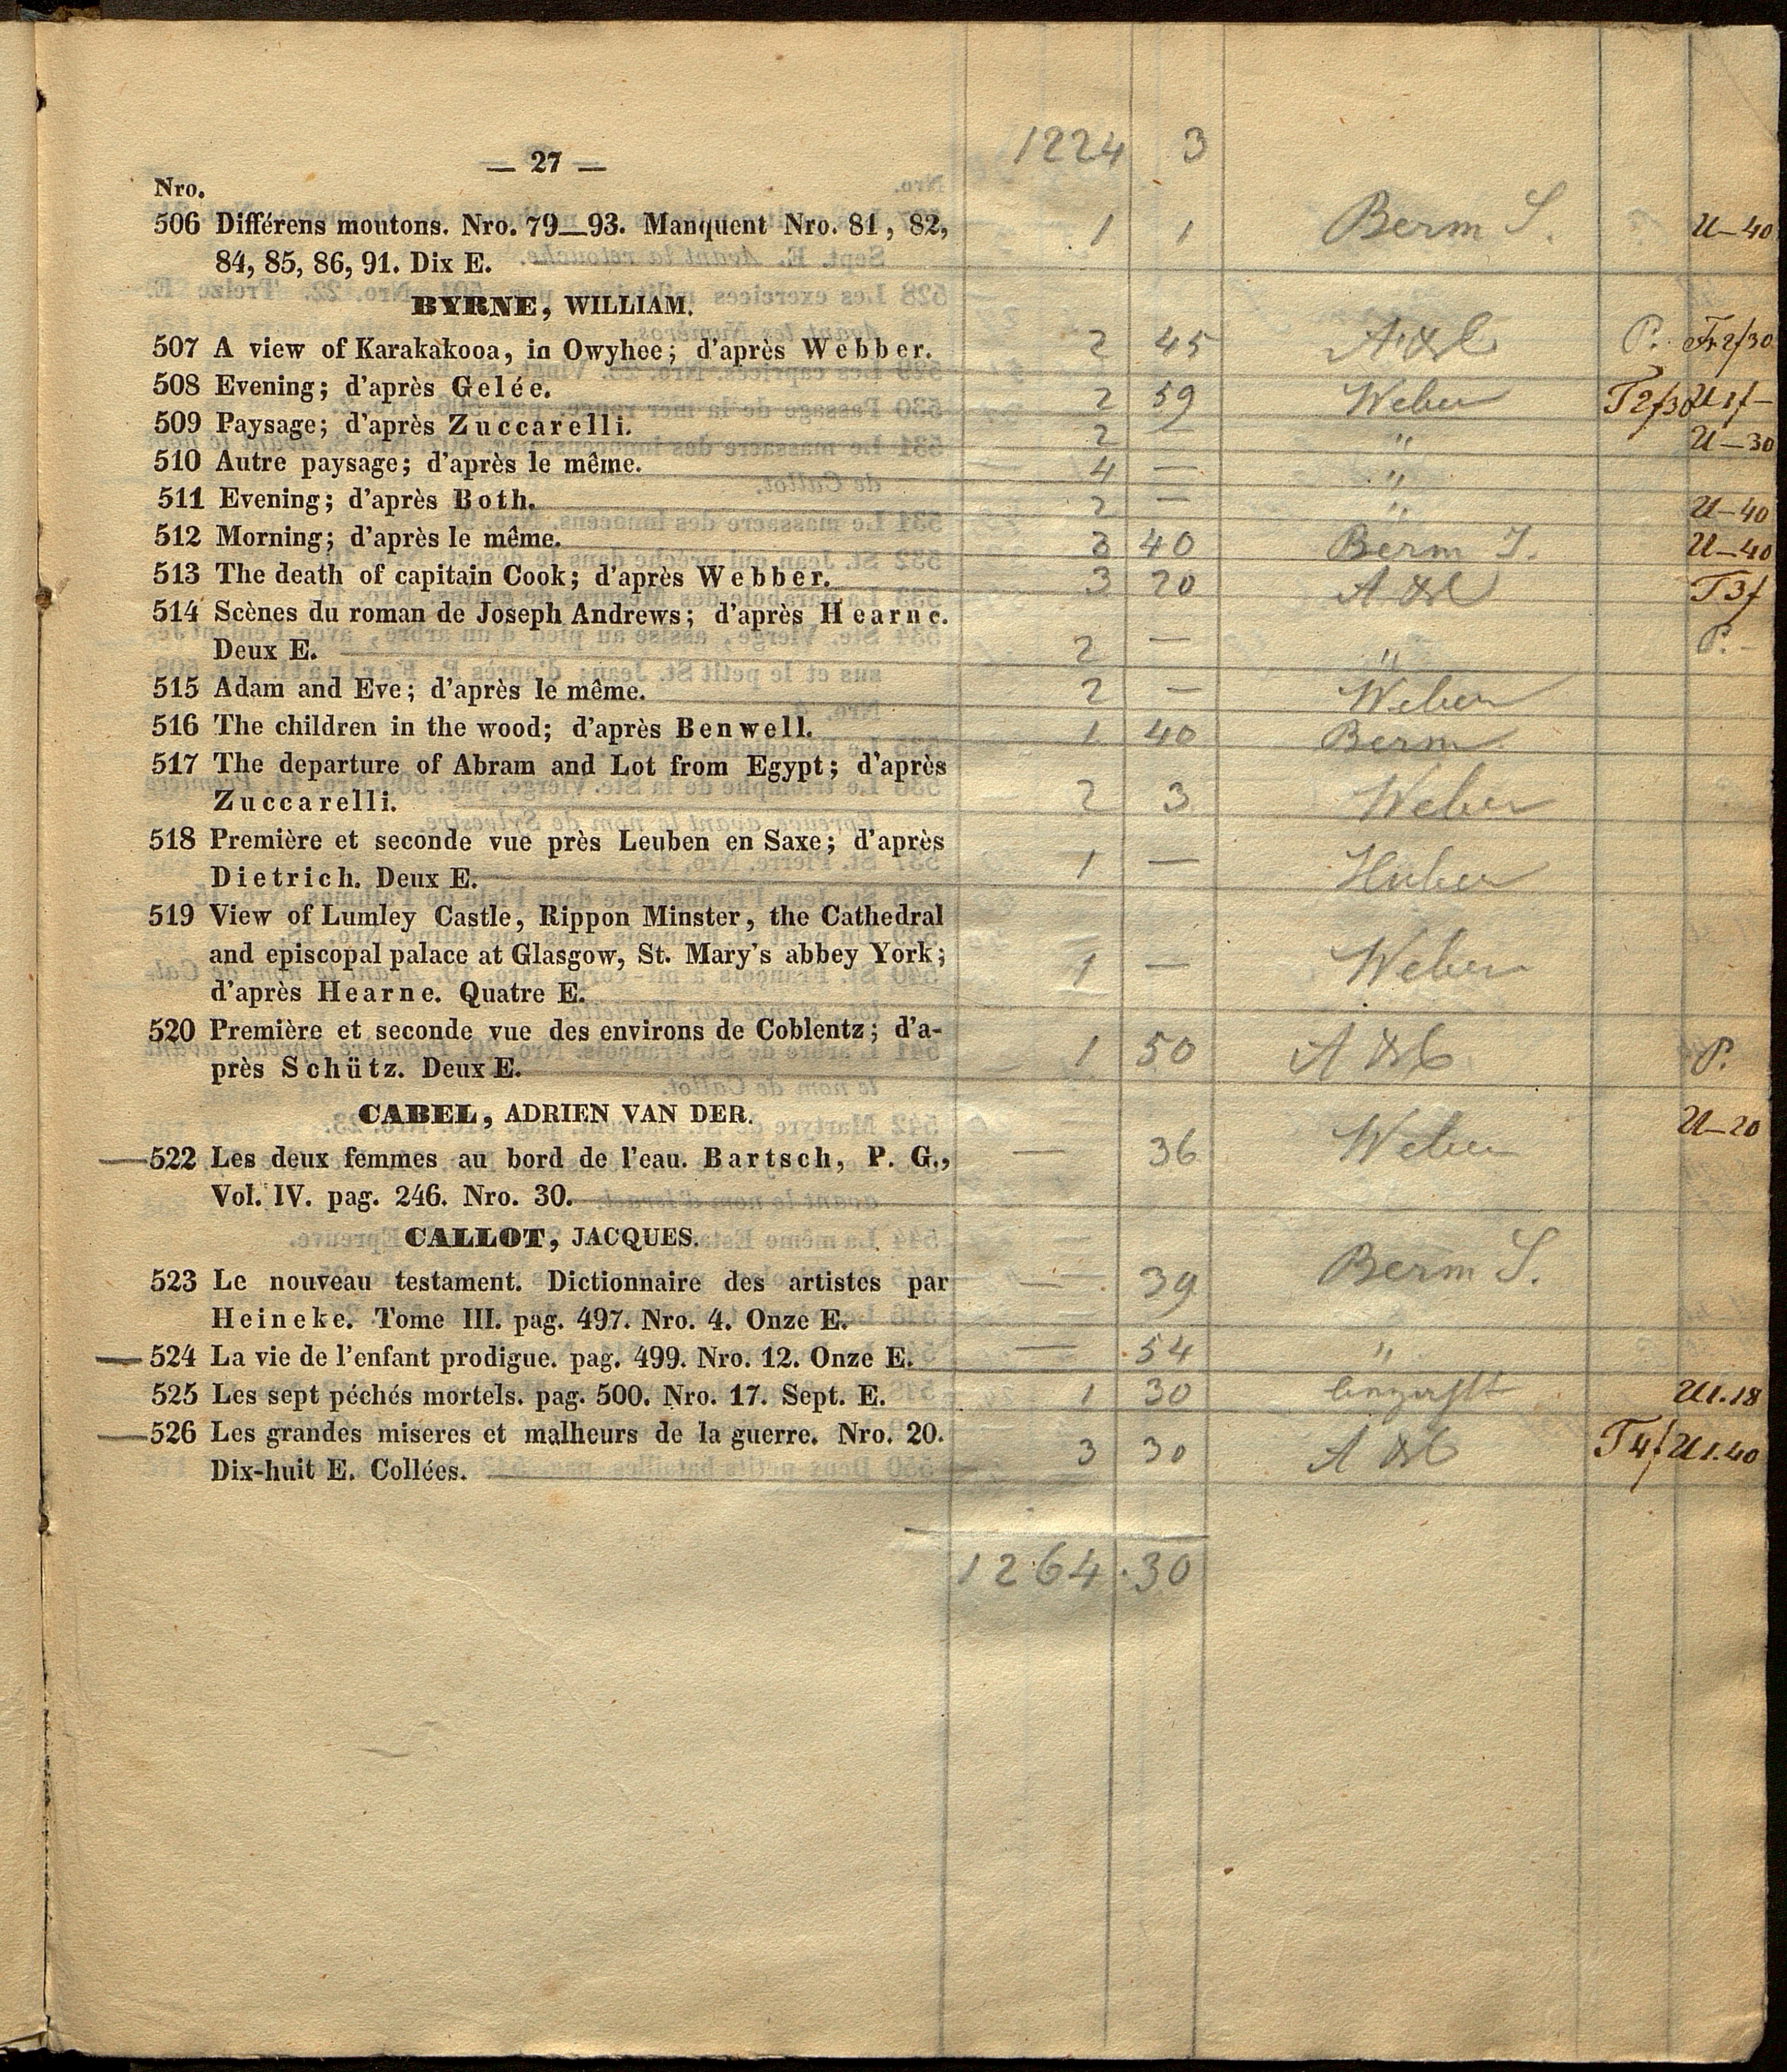 — 27 — 1224 3
Nro.
506 Différens moutons. Nro. 79—93. Manquent Nro. 81, 82, 1 1 Berm S. U—40
84, 85, 86, 91. Dix E.
BYRNE, WILLIAM.
507 A view of Karakakooa, in Owyhee; d'après Webber. 2 45 P. Fr 2f30
508 Evening; d'après Gelée. 2 59 Weber T2f30 U1f—
509 Paysage; d'après Zuccarelli. 2 — " U—30
510 Autre paysage; d'après le même. 4 — "
511 Evening; d'après Both. 2 — " U—40
512 Morning; d'après le même. 3 40 Berm U—40
513 The death of capitain Cook; d'après Webber. 3 20 T3f
514 Scènes du roman de Joseph Andrews; d'après Hearne.
Deux E. 2 — " P.—
515 Adam and Eve; d'après le même. 2 — Weber
516 The children in the wood; d'après Benwell. 1 40 Berm
517 The departure of Abram and Lot from Egypt; d'après
Zuccarelli. 2 3 Weber
518 Première et seconde vue près Leuben en Saxe; d'après
Dietrich. Deux E. 1 — Huber
519 View of Lumley Castle, Rippon Minster, the Cathedral
and episcopal palace at Glasgow, St. Mary's abbey York; 1 — Weber
d'après Hearne. Quatre E.
520 Première et seconde vue des environs de Coblentz; d'a-
près Schütz. Deux E. 1 50 P.
CABEL, ADRIEN VAN DER. U—20
—522 Les deux femmes au bord de l'eau. Bartsch, P. G., — 36 Weber
Vol. IV. pag. 246. Nro. 30.
CALLOT, JACQUES.
523 Le nouveau testament. Dictionnaire des artistes par — 39 Berm S.
Heineke. Tome III. pag. 497. Nro. 4. Onze E.
—524 La vie de l'enfant prodigue. pag. 499. Nro. 12. Onze E. — 54 "
525 Les sept péchés mortels. pag. 500. Nro. 17. Sept. E. 1 30 U1.18
—526 Les grandes miseres et malheurs de la guerre. Nro. 20. 3 30 T4f U1.40
Dix-huit E. Collées.
1264.30